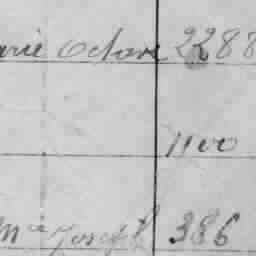 arie Octave 2288
1100
Mie Joseph 386